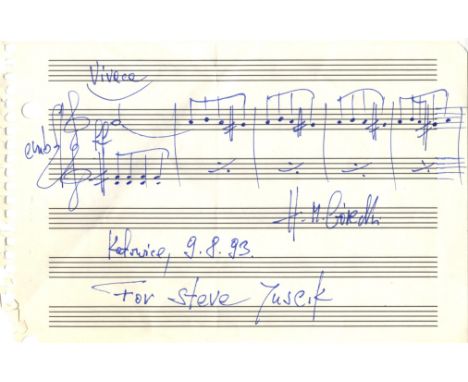 Vivace
cemb.
ff
H. M. Górecki
Katowice, 9.8.93.
For Steve Juscik